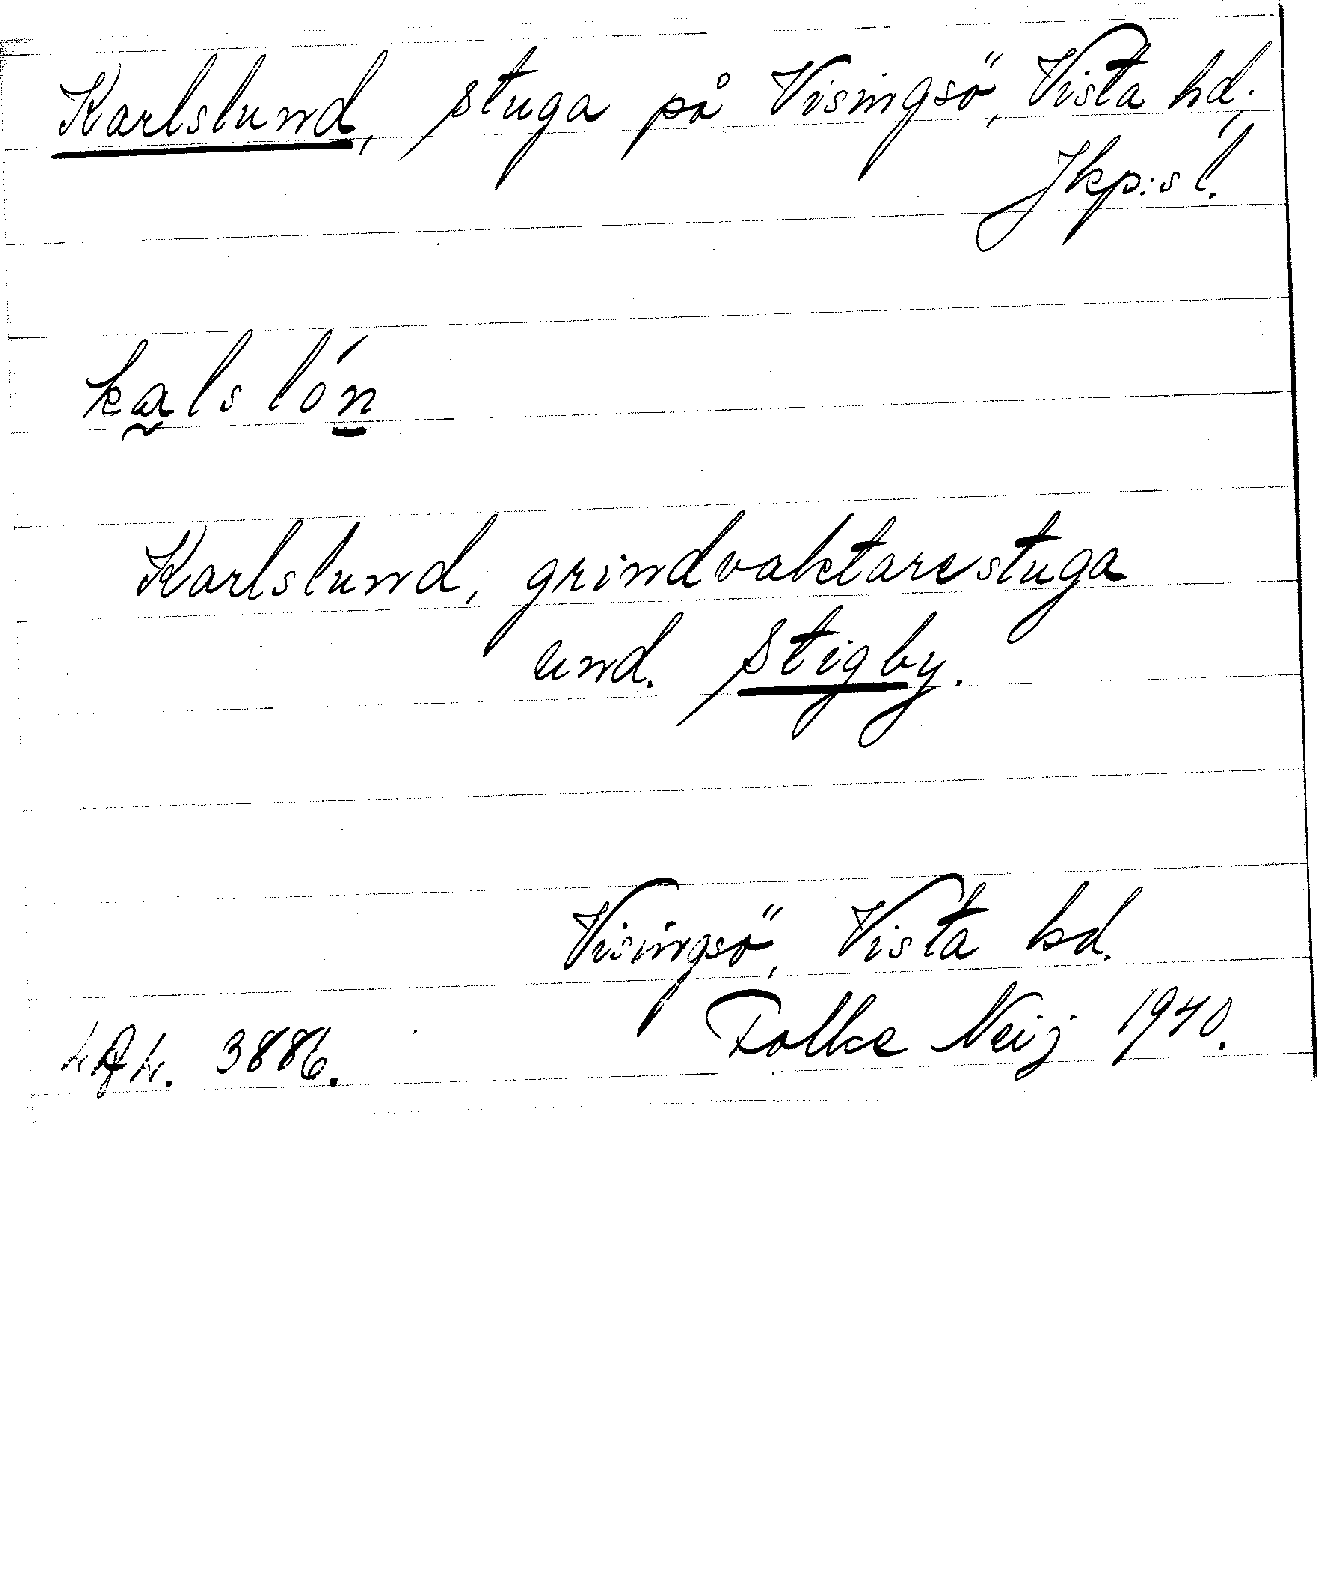 Karlslund, stuga på Visingsö, Vista hd.
Jkp:s l.
kalslón
Karlslund, grindvaktarestuga
und. Stigby.
Visingsö, Vista hd.
Folke Neij 1940.
3886.